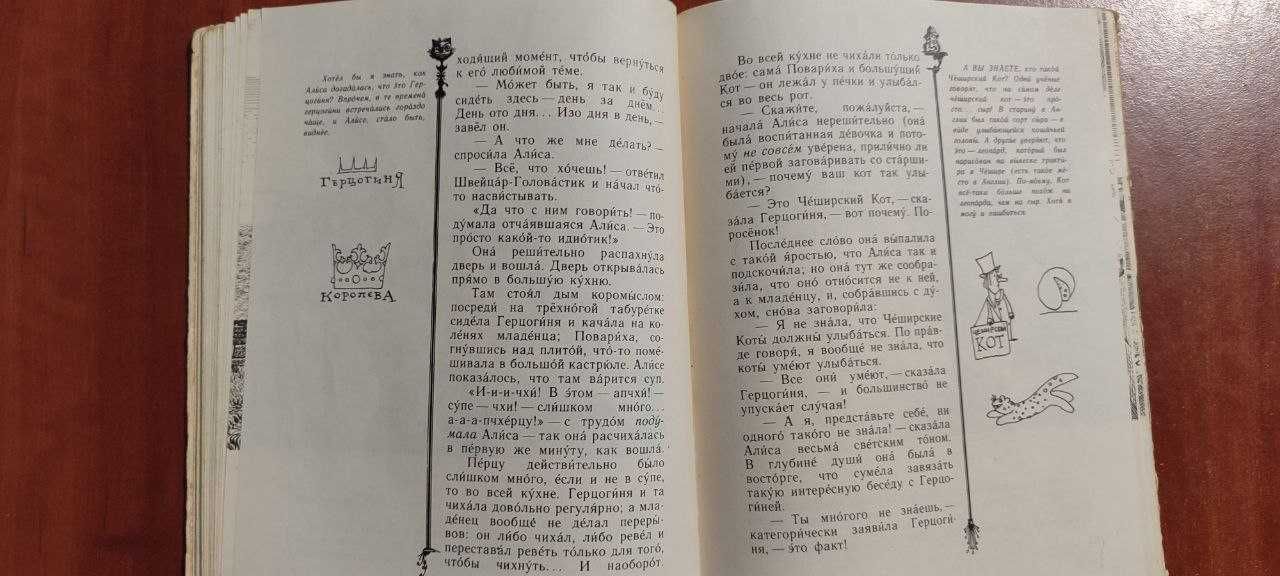 Хоте́л бы я знать, как
Али́са догада́лась, что э́то Гер-
цоги́ня? Впро́чем, в те времена́
герцоги́ни встреча́лись гора́здо
ча́ще, и Али́се, ста́ло быть,
видне́е.
ГЕРЦОГИНЯ
КОРОЛЕВА
ходя́щий моме́нт, что́бы верну́ться
к его́ люби́мой те́ме.
— Мо́жет быть, я так и бу́ду
сиде́ть здесь — день за днём...
День ото дня... Изо дня в день, —
завёл он.
— А что же мне де́лать? —
спроси́ла Али́са.
— Всё, что хо́чешь! — отве́тил
Швейца́р-Голова́стик и на́чал что́-
то насви́стывать.
«Да что с ним говори́ть! — по-
ду́мала отча́явшаяся Али́са. — Э́то
про́сто како́й-то идио́тик!»
Она́ реши́тельно распахну́ла
дверь и вошла́. Дверь открыва́лась
пря́мо в большу́ю ку́хню.
Там стоя́л дым коромы́слом:
посреди́ на трёхно́гой табуре́тке
сиде́ла Герцоги́ня и кача́ла на ко-
ле́нях младе́нца; Повари́ха, со-
гну́вшись над плито́й, что́-то поме́-
шивала в большо́й кастрю́ле. Али́се
показа́лось, что там ва́рится суп.
«И-и-и-чхи́! В э́том — апчхи́! —
су́пе — чхи! — сли́шком мно́го...
а-а-а-пчхе́рцу!» — с трудо́м поду́-
мала Али́са — так она́ расчиха́лась
в пе́рвую же мину́ту, как вошла́.
Пе́рцу действи́тельно бы́ло
сли́шком мно́го, е́сли и не в су́пе,
то во всей ку́хне. Герцоги́ня и та
чиха́ла дово́льно регуля́рно; а мла-
де́нец вообще́ не де́лал переры́-
вов: он ли́бо чиха́л, ли́бо реве́л и
перестава́л реве́ть то́лько для того́,
что́бы чихну́ть... И наоборо́т.
Во всей ку́хне не чиха́ли то́лько
дво́е: сама́ Повари́ха и большу́щий
Кот — он лежа́л у пе́чки и улыба́л-
ся во весь рот.
— Скажи́те, пожа́луйста, —
начала́ Али́са нереши́тельно (она́
была́ воспи́танная де́вочка и пото-
му́ не совсе́м уве́рена, прили́чно ли
ей пе́рвой загова́ривать со ста́рши-
ми), — почему́ ваш кот так улы-
ба́ется?
— Это Че́ширский Кот, — ска-
за́ла Герцоги́ня, — вот почему́. По-
росёнок!
После́днее сло́во она́ вы́палила
с тако́й я́ростью, что Али́са так и
подскочи́ла; но она́ тут же сообра-
зи́ла, что оно́ отно́сится не к ней,
а к младе́нцу, и, собра́вшись с ду́-
хом, сно́ва заговори́ла:
— Я не зна́ла, что Че́ширские
Коты́ должны́ улыба́ться. По пра́в-
де говоря́, я вообще́ не зна́ла, что
коты́ уме́ют улыба́ться.
— Все они́ уме́ют, — сказа́ла
Герцоги́ня, — и большинство́ не
упуска́ет слу́чая!
— А я, предста́вьте себе́, ни
одного́ тако́го не зна́ла! — сказа́ла
Али́са весьма́ све́тским то́ном.
В глубине́ души́ она́ была́ в
восто́рге, что суме́ла завяза́ть
таку́ю интере́сную бесе́ду с Герцо-
ги́ней.
— Ты мно́гого не зна́ешь, —
категори́чески заяви́ла Герцоги́-
ня, — э́то факт!
А ВЫ ЗНА́ЕТЕ, кто тако́й
Че́ширский Кот? Одни́ учёные
говоря́т, что на са́мом де́ле
че́ширский кот — э́то про́-
сто... сыр! В старину́ в А́н-
глии был тако́й сорт сы́ра — в
ви́де улыба́ющейся коша́чьей
головы́. А други́е уверя́ют, что
э́то — леопа́рд, кото́рый был
нарисо́ван на вы́веске тракти́-
ра в Че́шире (есть тако́е ме́-
сто в А́нглии). По-мо́ему, Кот
всё-таки бо́льше похо́ж на
леопа́рда, чем на сыр. Хотя́ я
могу́ и ошиба́ться.
ЧЕШИРСКИЙ
КОТ